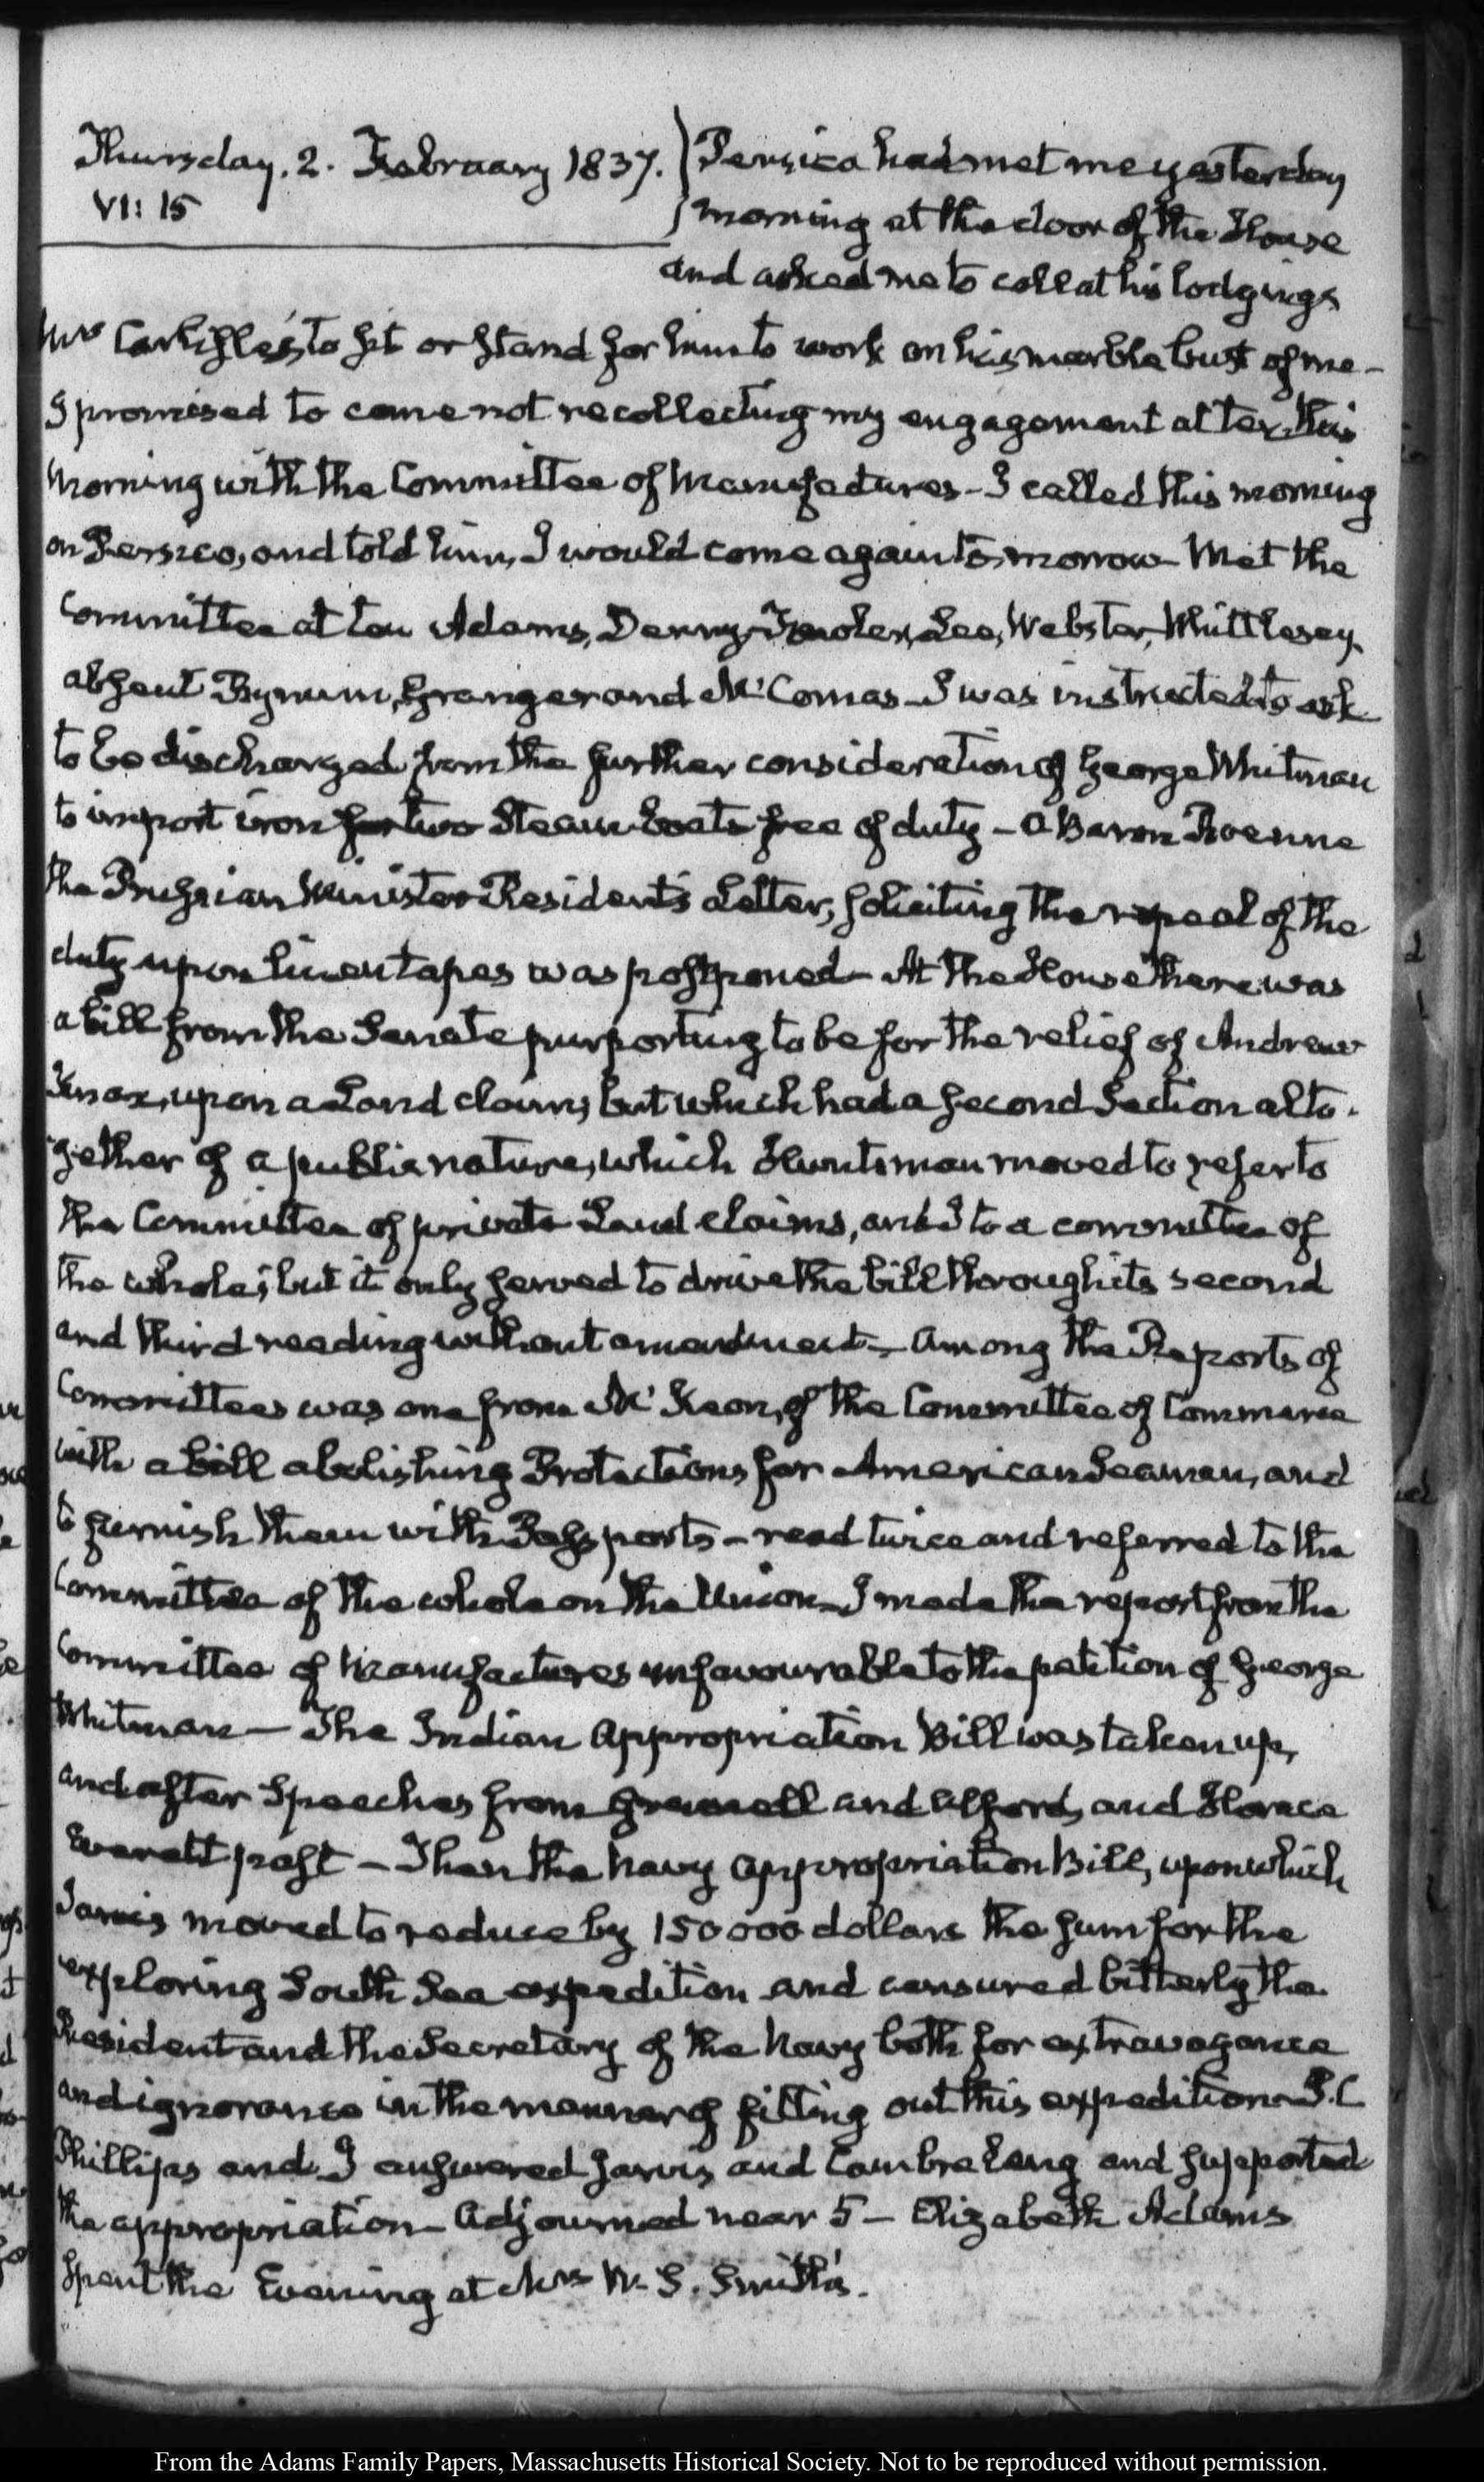 Thursday. 2. February 1837.
VI: 15
Persico had met me yesterday
morning at the door of the House
and asked me to call at his lodgings
Mrs Carlisle's, to sit or stand for him to work on his marble bust of me—
I promised to come not recollecting my engagement at ten, this
morning with the Committee of Manufactures— I called this morning
on Persico, and told him, I would come again to-morrow— Met the
Committee at ten Adams, Denny, Lee, Webster, Whittlesey.
absent Bynum, Granger and McComas— I was instructed to ask
to be discharged from the further consideration of George Whitman
to import iron for two Steam boats free of duty— a Baron Roenne
the Prussian Minister Resident's Letter, soliciting the repeal of the
duty upon linen tapes was postponed— At the House there was
a bill from the Senate purporting to be for the relief of Andrew
Knox, upon a Land claim, but which had a second Section alto-
gether of a public nature, which Huntsman moved to refer to
the Committee of private Land claims, and I to a committee of
the whole; but it only served to drive the bill through its second
and third reading without amendment— Among the Reports of
Committees was one from McKeon, of the Committee of Commerce
with a bill abolishing Protections for American Seamen, and
to furnish them with Passports— read twice and referred to the
Committee of the whole on the Union— I made the report from the
Committee of Manufactures unfavourable to the petition of George
Whitman— The Indian Appropriation Bill was taken up,
and after Speeches from and Alford, and Horace
Everett past— Then the Navy appropriation Bill, upon which
Jarvis moved to reduce by 150000 dollars the sum for the
exploring South Sea expedition and censured bitterly the
President and the Secretary of the Navy both for extravagance
and ignorance in the manner of fitting out this expedition— S. C.
Phillips and I answered Jarvis and Cambreleng and supported
the appropriation— Adjourned near 5— Elizabeth Adams
spent the Evening at Mrs W. S. Smith's.
From the Adams Family Papers, Massachusetts Historical Society. Not to be reproduced without permission.